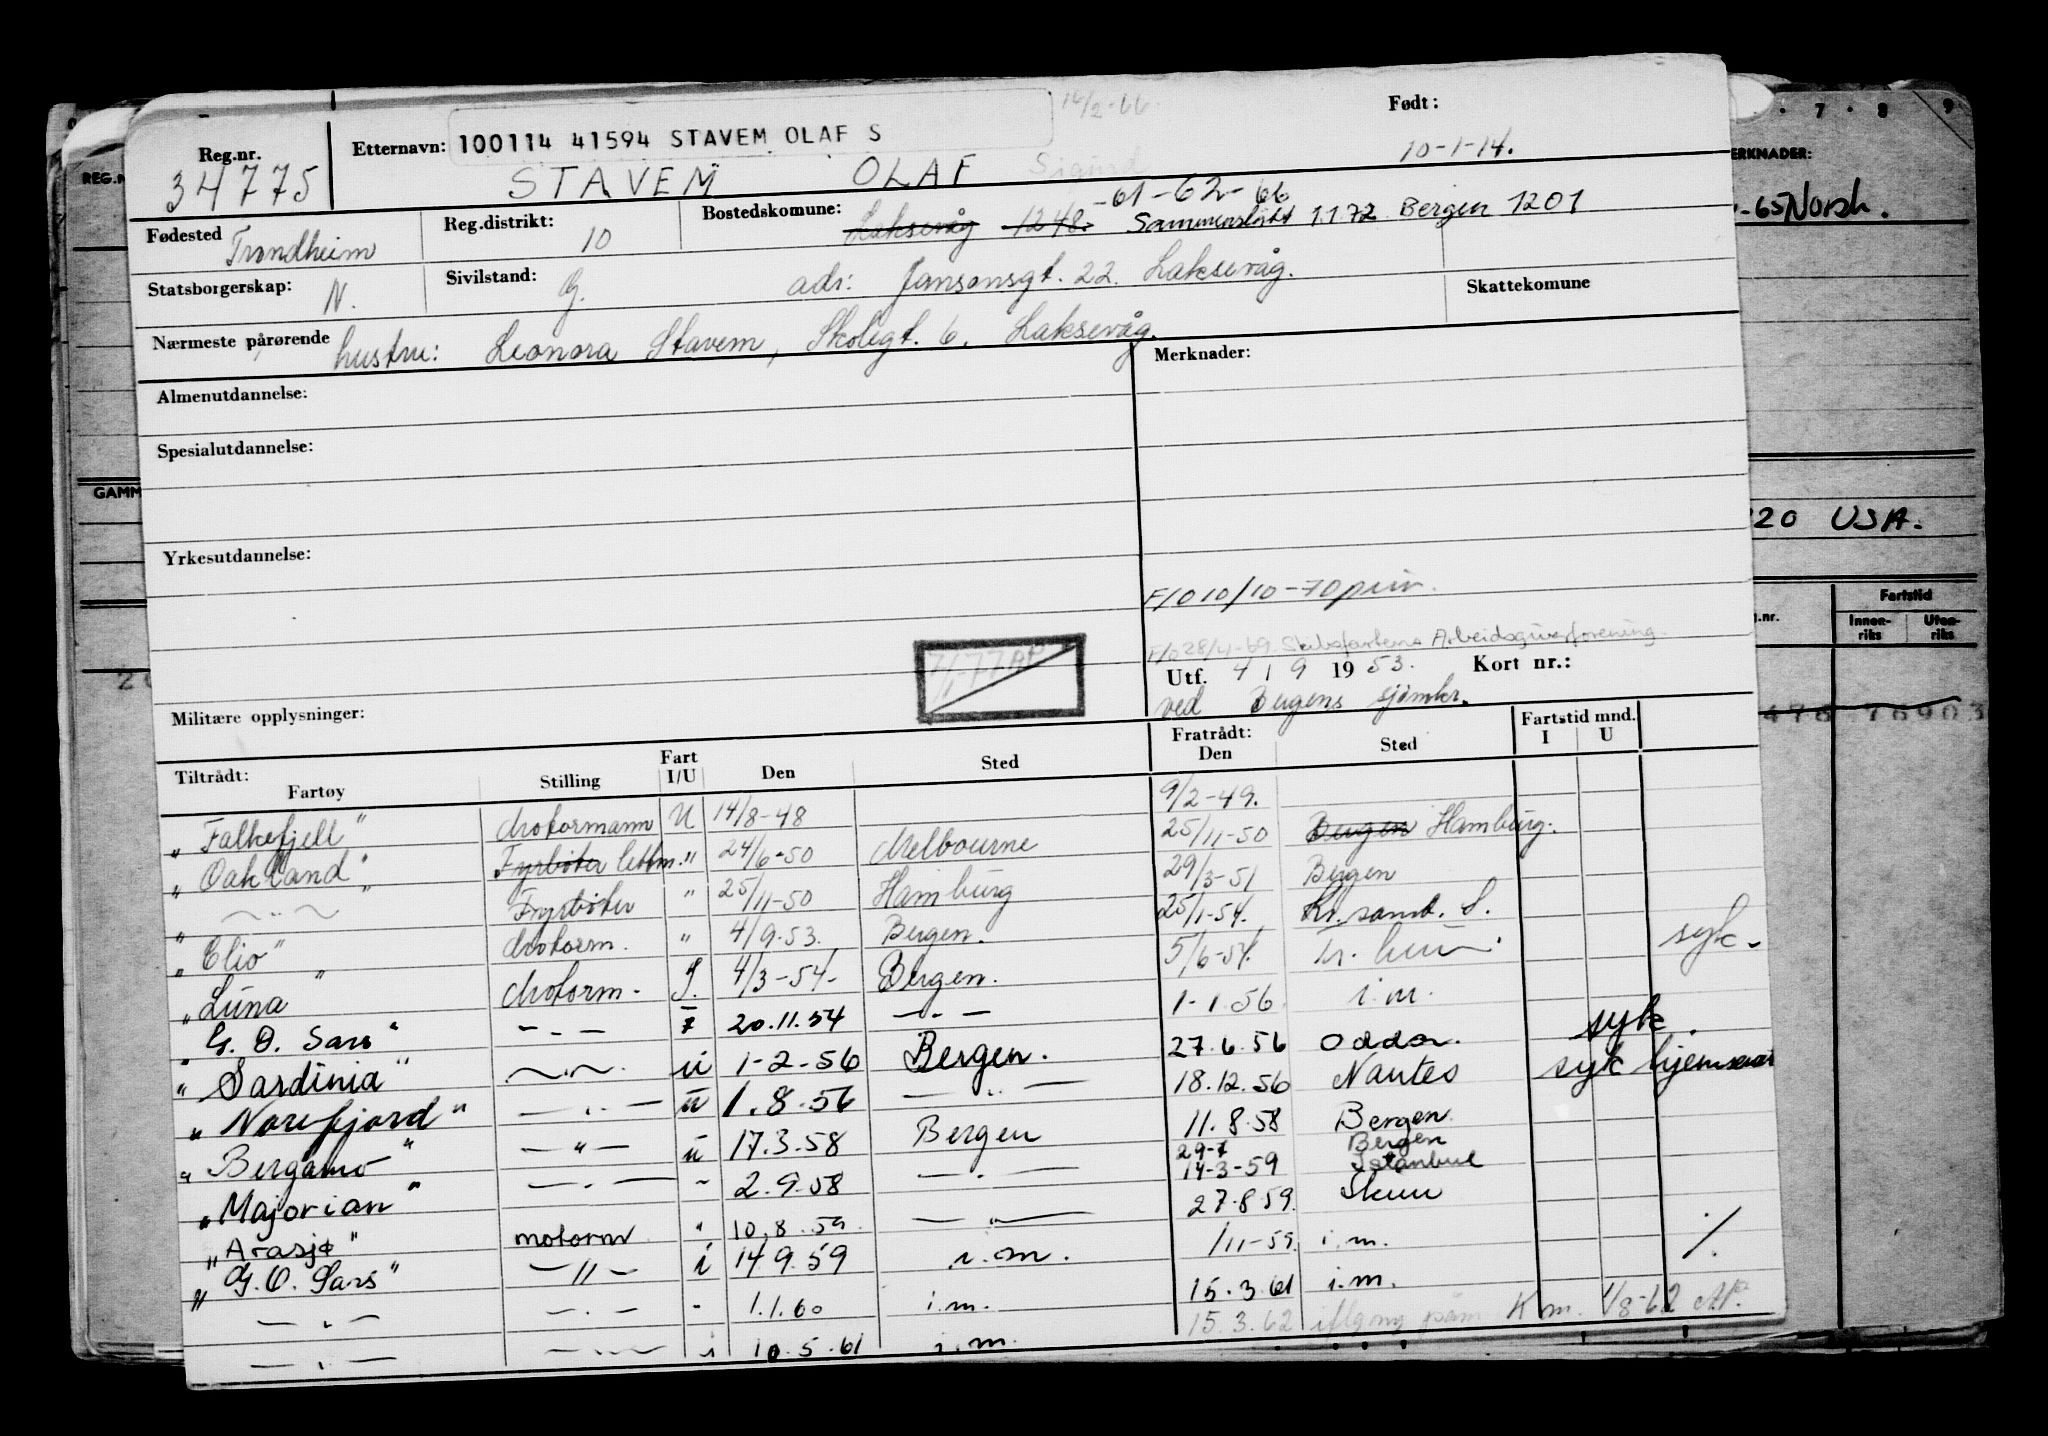 16/2-66
Født:
Reg.nr. Etternavn: 100114 41594 STAVEM OLAF S
34775 STAVEM OLAF Sigurd 10-1-14.
-61-62-66
Fødested Trondheim Reg.distrikt: 10 Bostedskomune: Laksevåg 1248. Sammenslått 1.1.72 Bergen 1201
Statsborgerskap: N. Sivilstand: G. adr: Jansonsgt. 22. Laksevåg. Skattekomune
Nærmeste pårørende hustru: Leonora Stavem, Skolegt. 6. Laksevåg.
Almenutdannelse: Merknader:
Spesialutdannelse:
Yrkesutdannelse:
F/O 10/10-70 priv.
F/O 28/4-69. Skibsfartens Arbeidsgiverforening
Utf. 4 / 9 1953. Kort nr.:
ved Bergens sjømktr.
Militære opplysninger:
Tiltrådt: Fratrådt: Fartstid mnd.
Fartøy Stilling Fart I/U Den Sted Den Sted I U
"Falkefjell" Motormann U 14/8-48 9/2-49.
"Oakland" Fyrbøter lettm. " 24/6-50 Melbourne 25/11-50 Bergen Hamburg.
" — " — " Fyrbøter " 25/11-50 Hamburg 29/3-51 Bergen
"Clio" Motorm. " 4/9-53. Bergen. 25/1-54. Kr.sand. S.
"Luna" Motorm. I. 4/3-54- Bergen. 5/6-54. syk.
"G. O. Sars" — " — I 20.11.54 — " — 1-1.56 i.m.
"Sardinia" — " — U 1-2-56 Bergen. 27.6.56 Odda. syk.
"Norefjord" — " — U 1.8.56 — " — 18.12.56 Nantes syk hjemsendt
"Bergamo" — " — U 17.3.58 Bergen 11.8.58 Bergen.
29-7 Bergen
"Majorian" — " — " 2.9.58 — " — 14-3-59 Istanbul
"Arasjø" motorm " 10.8.59. — " — 27.8.59. Skien
"G.O. Sars" — " — i 14.9.59 i.m. 1/11-59. i.m. %
— " — — " — - 1.1.60 i.m. 15.3.61 i.m.
— " — — " — i 10.5.61 i.m. 15.3.62 iflg. Km. 1/8-62
ERKNADER:
-65 Norsk.
20 USA.
Fartstid
Innen-riks Uten-riks
REG.N
GAMM
476 76903